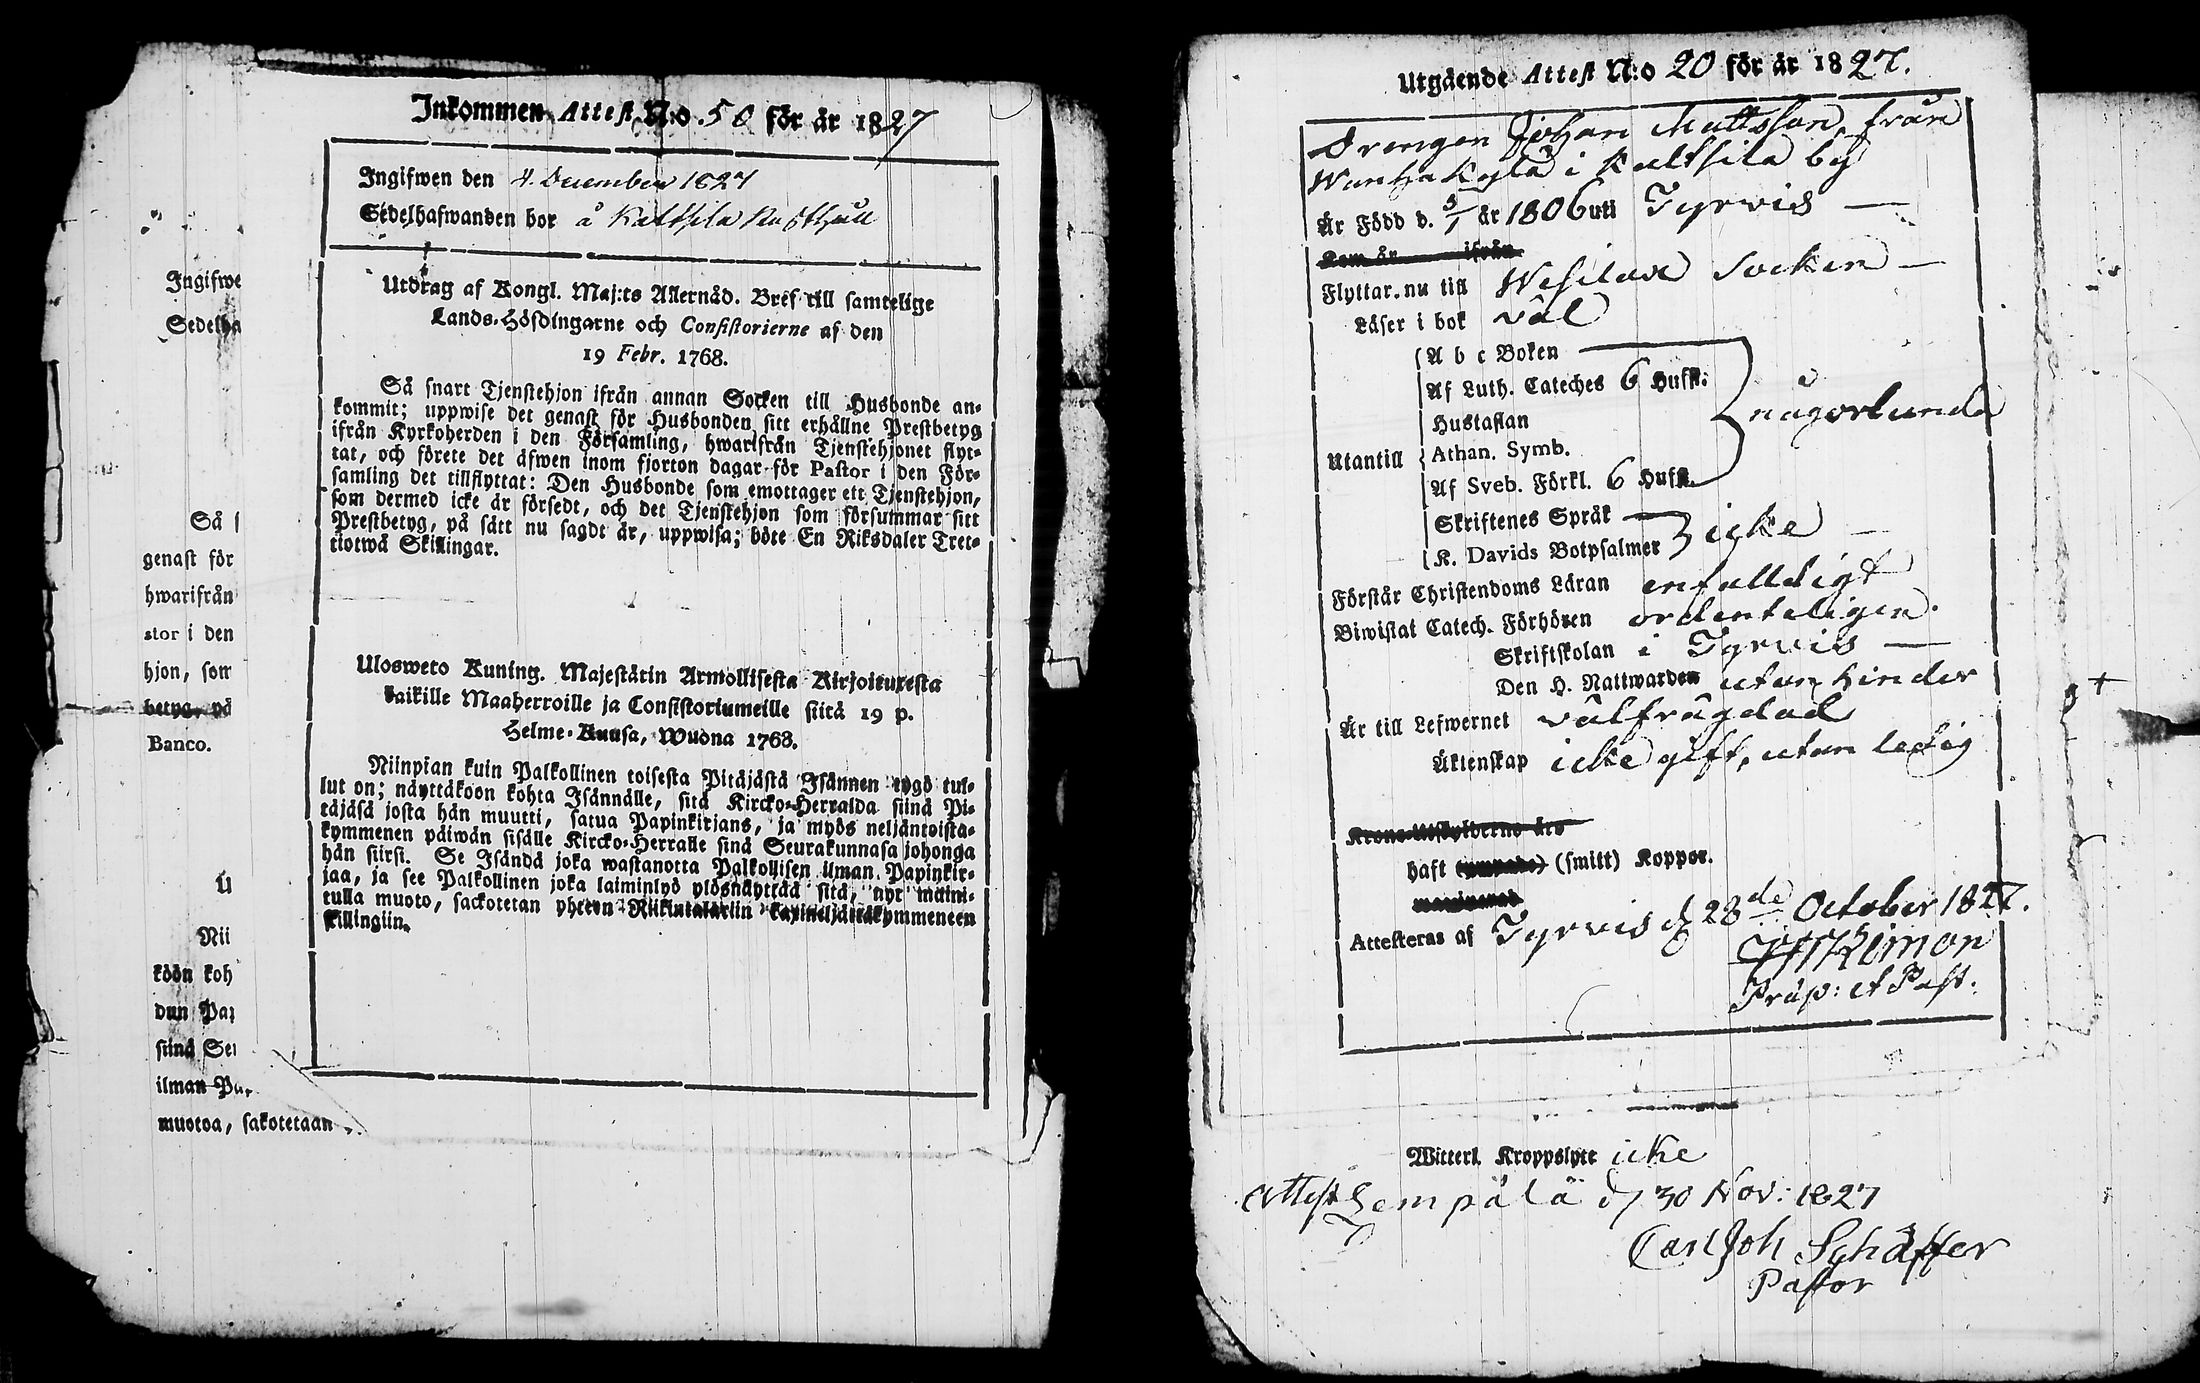 Inkommen Attest N:o 50 för år 1827
Ingifwen den 4. December 1827
Sedelhafwanden bor å Kaltsila Rusthåll
Utdrag af Kongl. Maj:ts Allernåd. Bref till samtelige
Lands-Höfdingarne och Consistorierne af den
19 Febr. 1768.
Så snart Tjenstehjon ifrån annan Socken till Husbonde an-
kommit; uppwise det genast för Husbonden sitt erhållne Prestbetyg
ifrån Kyrkoherden i den Församling, hwarifrån Tjenstehjonet flyt-
tat, och förete det äfwen inom fjorton dagar för Pastor i den För-
samling det tillflyttat: Den Husbonde som emottager ett Tjenstehjon,
som dermed icke är försedt, och det Tjenstehjon som försummar sitt
Prestbetyg, på sätt nu sagdt är, uppwisa; böte En Riksdaler Tret-
tiotwå Skillingar.
Ulosweto Kuning. Majestätin Armollisesta Kirjoituxesta
kaikille Maaherroille ja Consistoriumeille siitä 19 p.
Helme-Kuusa, Wuona 1768.
Niinpian kuin Palkollinen toisesta Pitäjästä Isännen tygö tul-
lut on; näyttäkoon kohta Isännälle, sitä Kircko-Herralda siinä Pi-
täjäsä josta hän muutti, saatua Papinkirjans, ja myös neljäntoista-
kymmenen päiwän sisälle Kircko-Herralle siinä Seurakunnasa johonga
hän siirsi. Se Isändä joka wastanotta Palkollisen ilman Papinkir-
jaa, ja see Palkollinen joka laiminlyö ylösnäyttää sitä, nyt maini-
tulla muoto, sackotetan yhteen Riikintalariin kaxineljättäkymmeneen
killingiin.
Ingifwe
Sedelha
Så s
genast för
hwarifrån
stor i den
hjon, som
betyg, på
Banco.
U
Nii
köön koh
dun Pap
siinä Seu
ilman Pap
muotoa, sakotetaan
Utgående Attest N:o 20 för år 1827.
Drengen Johan Mattsson, från
Wanhakylä i Kaltsila by
År Född d. 5/1 år 1806 uti Tyrvis
Kom år ifrån
Flyttar nu till Wesilax Socken
Läser i bok väl
A b c Boken
Af Luth. Cateches 6 Hufst.
Hustaflan någorlunda
Utantill Athan. Symb.
Af Sveb. Förkl. 6 Hufst.
Skriftenes Språk
K. Davids Botpsalmer icke
Förstår Christendoms Läran enfalldigt
Biwistat Catech. Förhören ordenteligen.
Skriftskolan i Tyrvis
Den H. Nattwarden utan hinder
Är till Lefwernet välfrägdad
Äktenskap icke gift, utan ledig
Krono-Utskylderne års
haft (smitt) Koppor.
Attesteras af Tyrvis d 28de October 1827.
Präp: et Past.
Witterl. Kroppslyte icke
Attest Lempälä d 30 Nov: 1827
Carl Joh Schäffer
Pastor